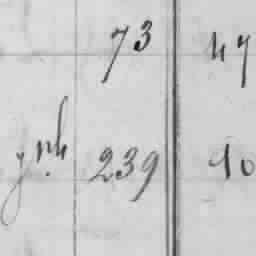 73 47
239 10